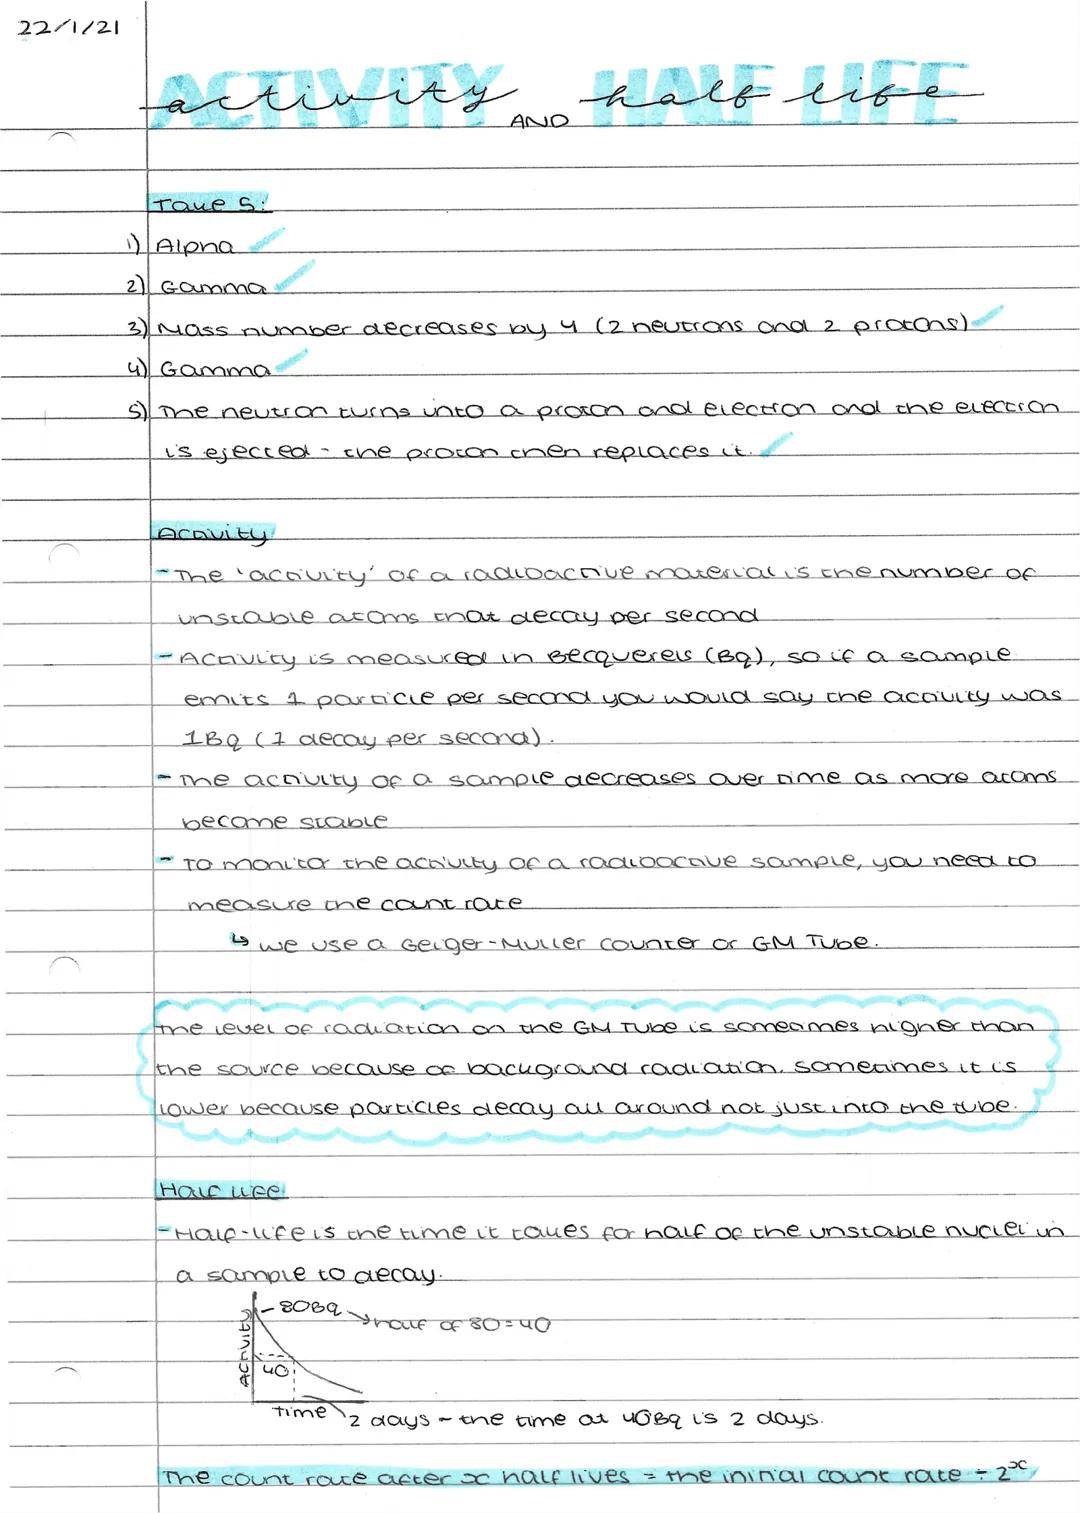 22/1/21
ACTIVITY HALF LIFE
activity AND half life
Take 5:
1) Alpha
2) Gamma
3) Mass number decreases by 4 (2 neutrons and 2 protons)
4) Gamma
5) The neutron turns into a proton and electron and the electron
is ejected - the proton then replaces it.
Activity
- The 'activity' of a radioactive material is the number of
unstable atoms that decay per second
- Activity is measured in Becquerels (Bq), so if a sample
emits 1 particle per second you would say the activity was
1Bq (1 decay per second).
- The activity of a sample decreases over time as more atoms
become stable
- To monitor the activity of a radioactive sample, you need to
measure the count rate
↳ we use a Geiger-Muller counter or GM Tube.
The level of radiation on the GM Tube is sometimes higher than
the source because of background radiation. sometimes it is
lower because particles decay all around not just into the tube.
Half life
- Half-life is the time it takes for half of the unstable nuclei in
a sample to decay.
- 80Bq → half of 80 = 40
Activity
40
Time 2 days - the time at 40Bq is 2 days.
The count rate after x half lives = the initial count rate ÷ 2ˣ